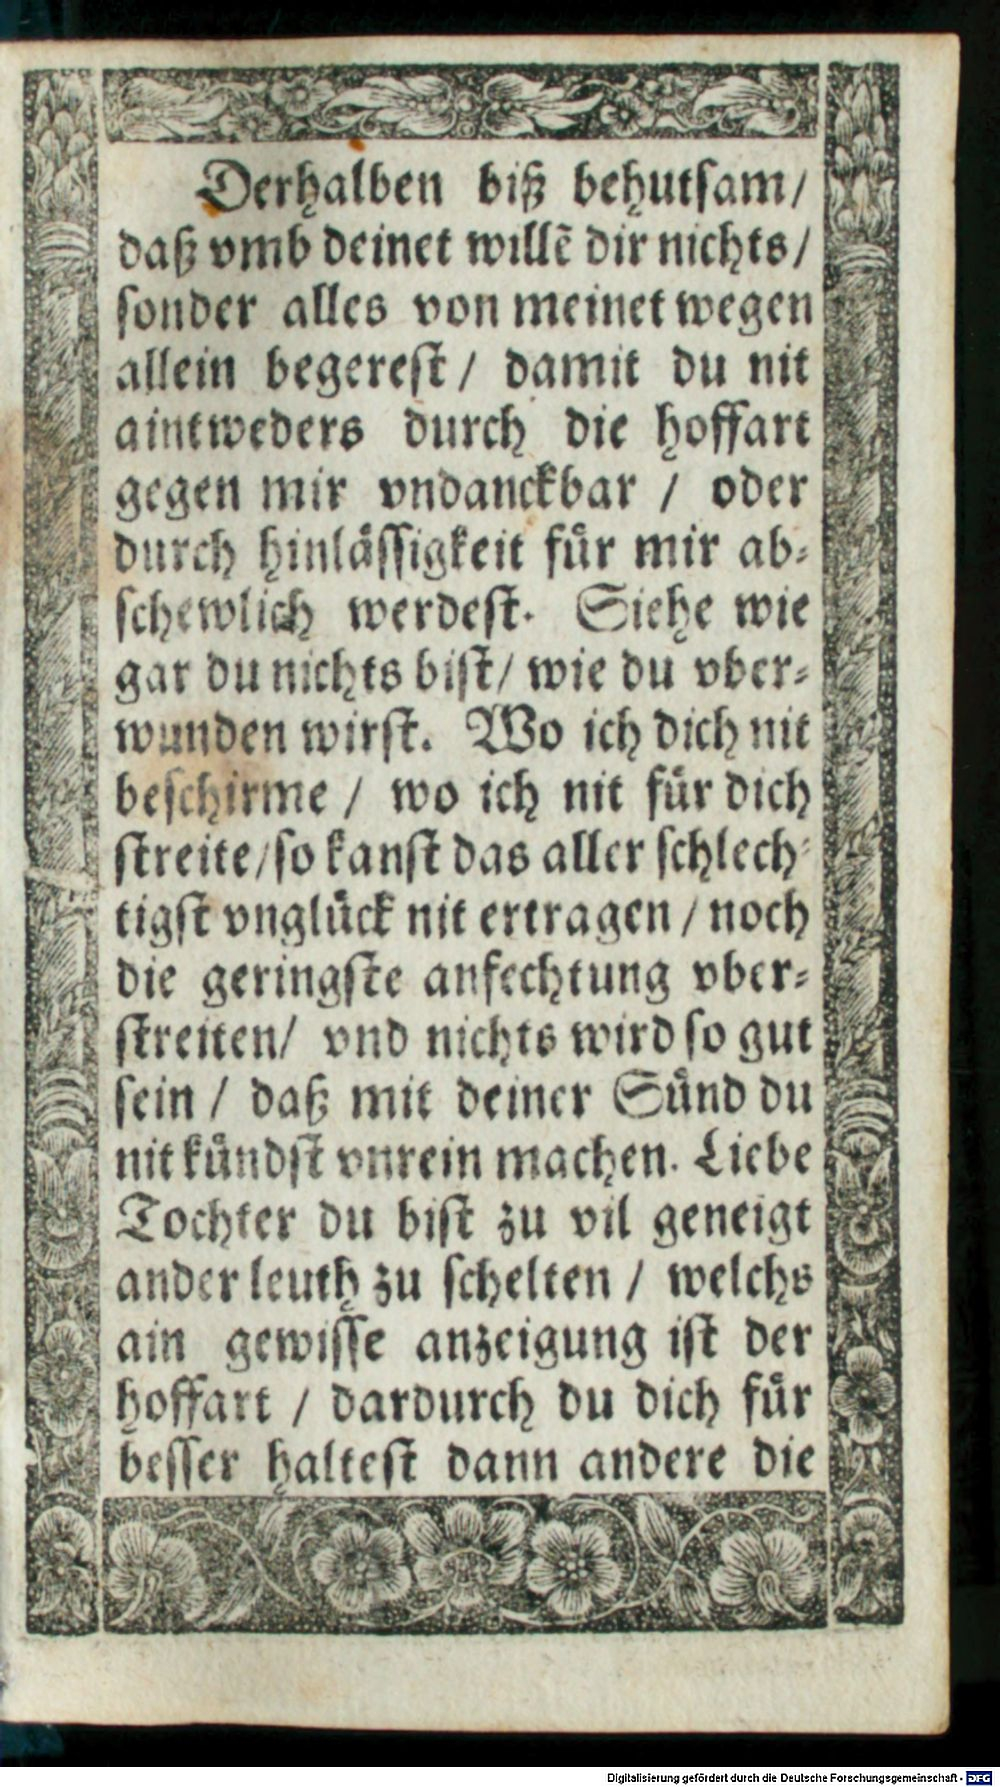 Derhalben biß behutsam/
daß vmb deinet willẽ dir nichts/
sonder alles von meinet wegen
allein begerest/ damit du nit
aintweders durch die hoffart
gegen mir vndanckbar / oder
durch hinlässigkeit für mir ab-
schewlich werdest. Siehe wie
gar du nichts bist/ wie du vber-
wunden wirst. Wo ich dich nit
beschirme / wo ich nit für dich
streite/so kanst das aller schlech-
tigst vnglück nit ertragen/ noch
die geringste anfechtung vber-
streiten/ vnd nichts wird so gut
sein / daß mit deiner Sünd du
nit kündst vnrein machen. Liebe
Tochter du bist zu vil geneigt
ander leuth zu schelten / welchs
ain gewisse anzeigung ist der
hoffart / dardurch du dich für
besser haltest dann andere die
Digitalisierung gefördert durch die Deutsche Forschungsgemeinschaft - DFG